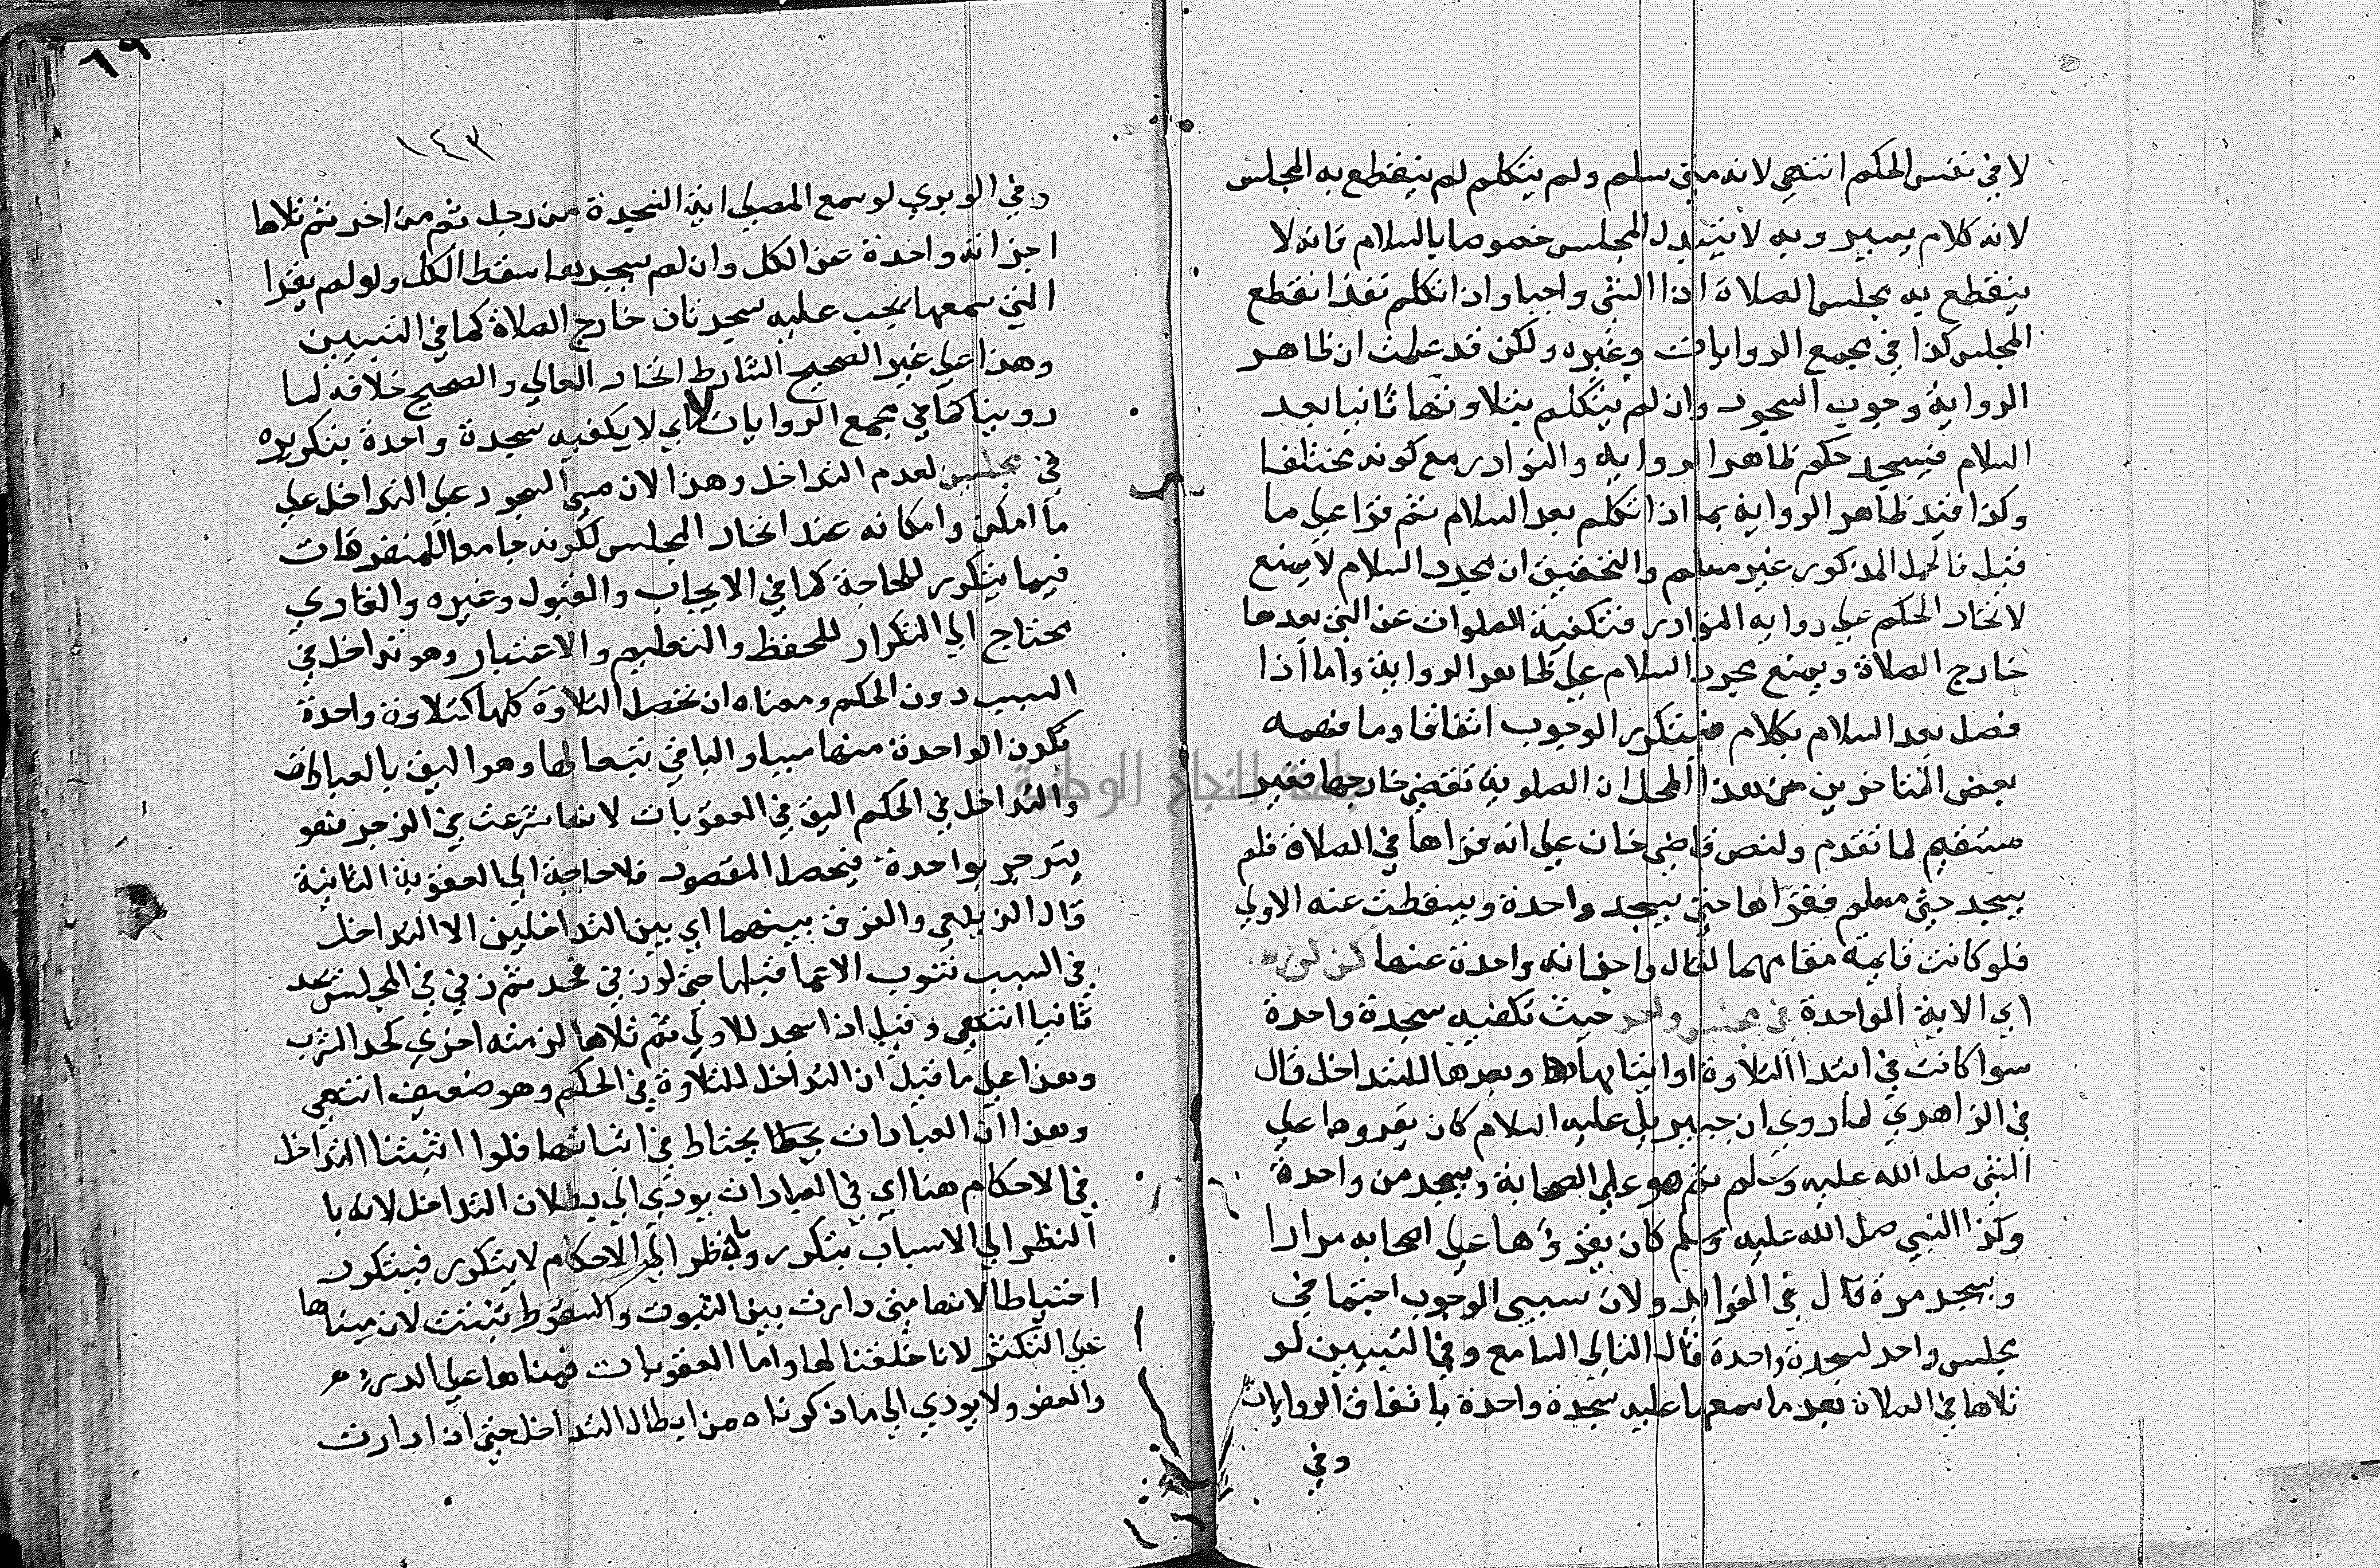 لا في نفس الحكم انتهي لانه متي سلم ولم يتكلم لم ينقطع به المجلس
لانه كلام يسير وبه لا يتبدل المجلس خصوصا بالسلام فانه لا
ينقطع به مجلس الصلاة اذا واجبا واذا تكلم فقد انقطع
المجلس كذا في مجمع الروايات وغيره ولكن قد علمت ان ظاهر
الرواية وجوب السجود وان لم يتكلم بتلاوتها ثانيا بعد
السلام فيتحد حكم ظاهر الرواية والنوادر مع كونه مختلفا
وكذا قيد ظاهر الرواية بما اذا تكلم بعد السلام ثم قرا علي ما
قيل فالحمل المذكور غير مسلم والتحقيق ان مجرد السلام لا يمنع
لاتحاد الحكم علي رواية النوادر فتكفيه الصلوات عن التي بعدها
خارج الصلاة ويمنع مجرد السلام علي ظاهر الرواية واما اذا
فصل بعد السلام بكلام فيتكرر الوجوب اتفاقا وما فهمه
بعض المتاخرين من هذا المحل ان الصلوية تقضي خارجها فغير
مستقيم لما تقدم ولنص قاضي خان علي انه قراها في الصلاة فلم
يسجد حتي سلم فقراها حتي يسجد واحدة ويسقطت عنه الاولي
فلو كانت قايمة مقامهما لقال واجزاته واحدة عنهما كمن كرر
اي الاية الواحدة في مجلس واحد حيث تكفيه سجدة واحدة
سوا كانت في ابتدا التلاوة او اثنايها وبعدها للتداخل قال
في الزاهدي لما روي ان جبريل عليه السلام كان يقروها علي
النبي صلي الله عليه وسلم ثم هو علي الصحابة ويسجد من واحدة
وكذا النبي صلي الله عليه وسلم كان يقرؤها علي اصحابه مرارا
ويسجد مرة قال في الفوايد ولان سببي الوجوب اجتمعا في
مجلس واحد لسجدة واحدة قال التالي السامع وفي التبيين لو
تلاها في الصلاة بعد ما سمعها عليه سجدة واحدة باتفاق الروايات
وفي
١٤٣
٦٩
وفي الوبري لو سمع المصلي اية السجدة من رجل ثم من اخر ثم تلاها
اجزاته واحدة عن الكل وان لم يسجد بها سقط الكل ولو لم يقرا
التي سمعها يجب عليه سجدتان خارج الصلاة كما في التبيين
وهذا علي غير الصحيح الشارط اتحاد التالي والصحيح خلافه لما
روينا كما في مجمع الروايات لا اي لا يكفيه سجدة واحدة بتكريره
في مجلسين لعدم التداخل وهذا لان مبني السجود علي التداخل علي
ما امكن وامكانه عند اتحاد المجلس لكونه جامعا للمتفرقات
فيما يتكرر للحاجة كما في الايجاب والقبول وغيره والقاري
محتاج الي التكرار للحفظ والتعليم والاعتبار وهو تداخل في
السبب دون الحكم ومعناه ان تحصل التلاوة كلها كتلاوة واحدة
تكون الواحدة منها سببا والباقي تبعا لها وهو اليق بالعبادات
والتداخل في الحكم اليق في العقوبات لانها شرعت في الزجر فهو
ينزجر بواحدة فيحصل المقصود فلا حاجة الي العقوبة الثانية
قال الزيلعي والفرق بينهما اي بين التداخلين الا التداخل
في السبب تنوب الا عما قبلها حتي لو زني فحد ثم زني في المجلس يحد
ثانيا انتهي وقيل اذا سجد للاولي ثم تلاها لزمته اخري كحد الشرب
وهذا علي ما قيل ان التداخل للتلاوة في الحكم وهو ضعيف انتهي
وهذا ان العبادات يحتاط في اثباتها فلوا اثبتنا التداخل
في الاحكام هنا اي في العبادات يودي الي بطلان التداخل لانه با
النظر الي الاسباب يتكرر وبالنظر الي الاحكام لا يتكرر فيتكرر
احتياطا لانها متي دارت بين الثبوت والسقوط تثبت لان مبناها
علي التكثر لانا خلقنا لها واما العقوبات فمبناها علي الدرء
والعفو ولا يودي الي ما ذكرناه من ابطال التداخل حتي اذا دارت
جامعة النجاح الوطنية